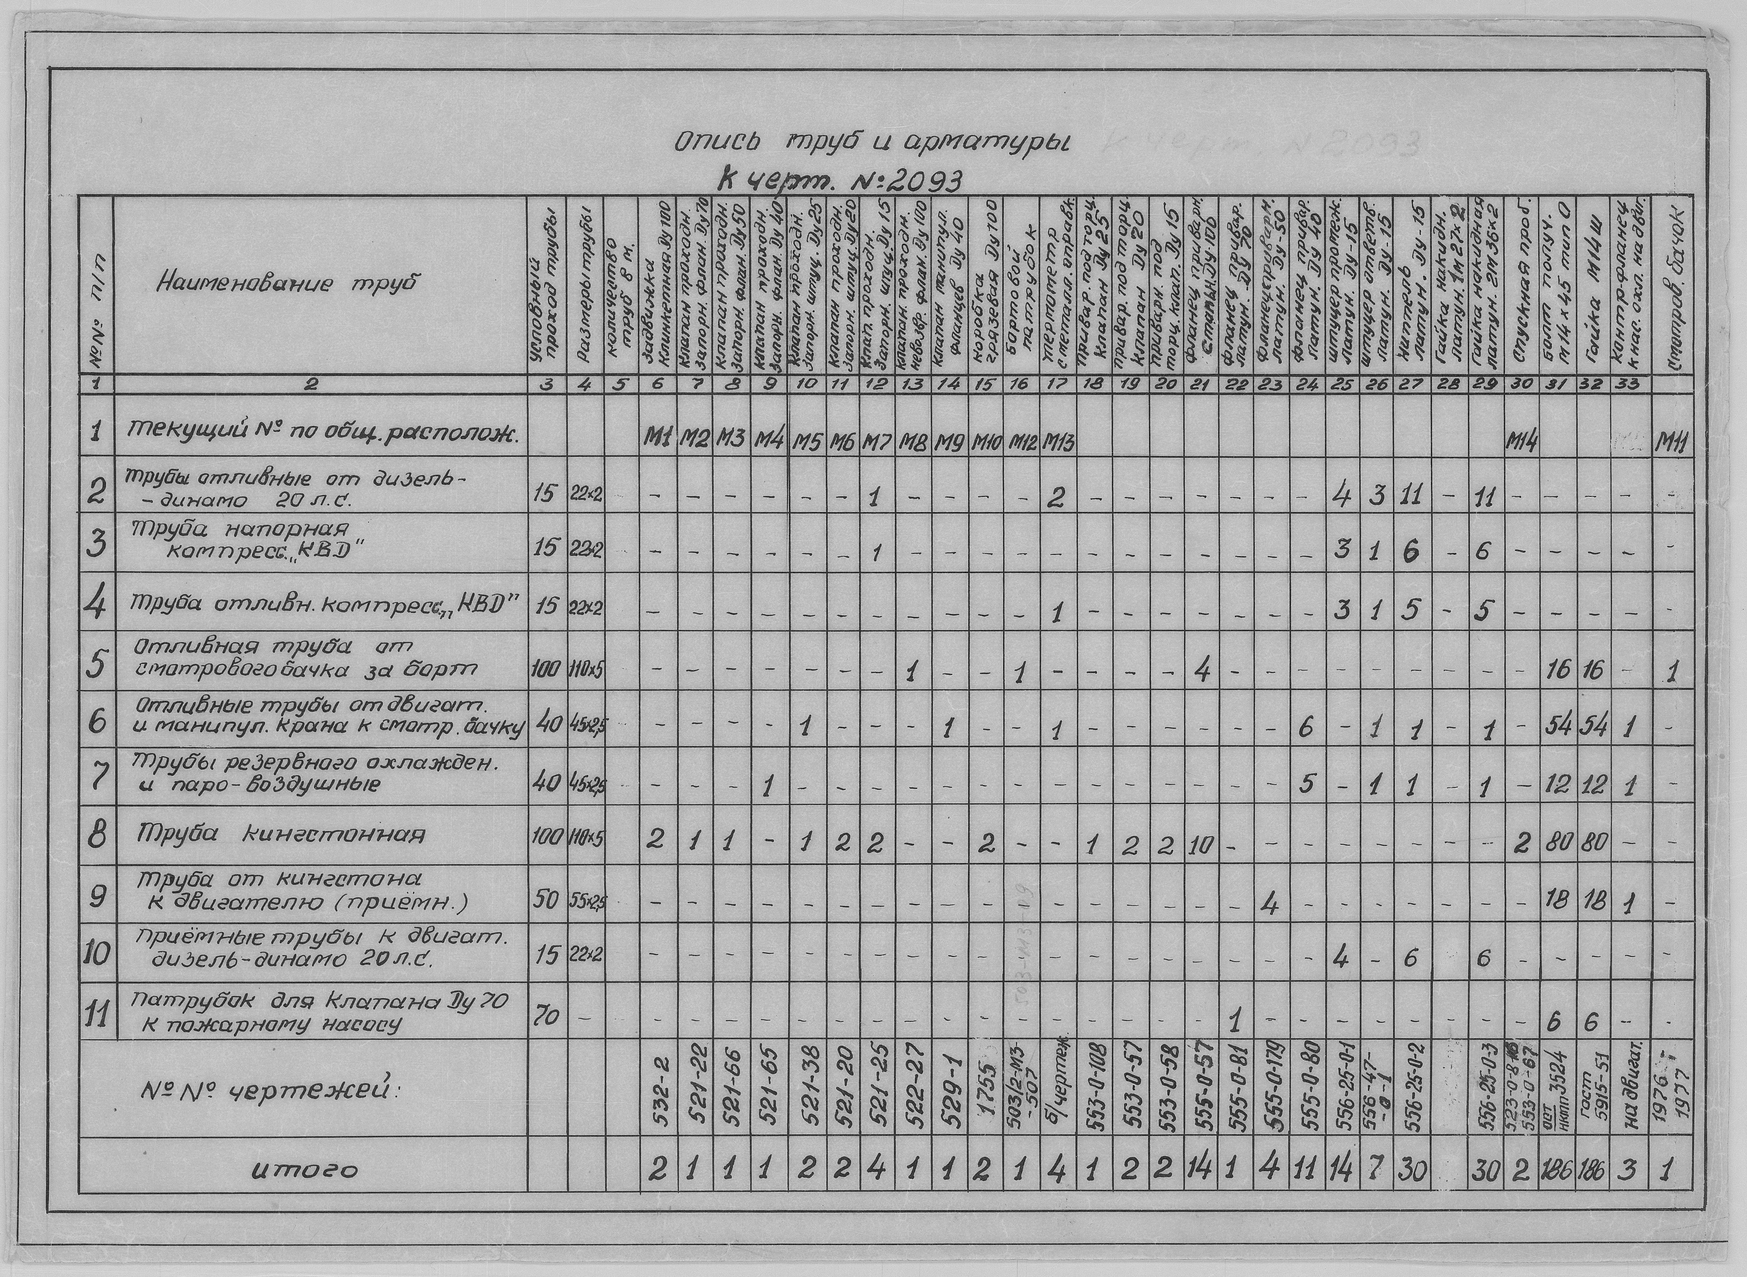 Опись труб и арматуры
К черт. №2093
№№ п/п
Наименование труб
Условный проход трубы
Размеры трубы
Количество труб в м.
Задвижка Клинкетная Ду 100
Клапан проходн. Запорн. флан. Ду 70
Клапан проходн. Запорн. флан. Ду 50
Клапан проходн. Запорн. флан. Ду 40
Клапан проходн. Запорн. штуц. Ду 25
Клапан проходн. Запорн. штуц. Ду 20
Клап. проходн. Запорн. штуц. Ду 15
Клапан проходн. невозвр. флан. Ду 100
Клапан манипул. фланцев Ду 40
Коробка грязевая Ду 100
Бортовой патрубок
Термометр с металл. оправк.
Привар. под торц. Клапан Ду 25
Привар. под торц. Клапан Ду 20
Приварн. под торц. клап. Ду 15
Фланец приварн. Стальн. Ду 100
Фланец привар. латун. Ду 70
Фланец приварн. латун. Ду-50
Фланец привар. латун. Ду 40
Штуцер промеж. латун. Ду-15
Штуцер ответв. латун. Ду-15
Ниппель латун. Ду-15
Гайка накидн. латун. 1м 27х2
Гайка накидная латун. 2м 36х2
Спускная проб.
Болт получ. М14х45 тип О
Гайка М14Ш
Контр-фланец к нас. охл. на двиг.
Смотров. бачок
1 2 3 4 5 6 7 8 9 10 11 12 13 14 15 16 17 18 19 20 21 22 23 24 25 26 27 28 29 30 31 32 33
1 Текущий № по общ. располож. М1 М2 М3 М4 М5 М6 М7 М8 М9 М10 М12 М13 М14 М11
2 Трубы отливные от дизель-
-динамо 20 л.с. 15 22х2 - - - - - - 1 - - - - 2 - - - - - - - 4 3 11 - 11 - - - - -
3 Труба напорная
компресс. „КВD" 15 22х2 - - - - - - 1 - - - - - - - - - - - - 3 1 6 - 6 - - - - -
4 Труба отливн. компресс. „КВD" 15 22х2 - - - - - - - - - - - 1 - - - - - - - 3 1 5 - 5 - - - - -
5 Отливная труба от
смотрового бачка за борт 100 110х5 - - - - - - - 1 - - 1 - - - - 4 - - - - - - - - - 16 16 - 1
6 Отливные трубы от двигат.
и манипул. крана к смотр. бачку 40 45х2,5 - - - - 1 - - - 1 - - 1 - - - - - - 6 - 1 1 - 1 - 54 54 1 -
7 Трубы резервного охлажден.
и паро-воздушные 40 45х2,5 - - - 1 - - - - - - - - - - - - - - 5 - 1 1 - 1 - 12 12 1 -
8 Труба кингстонная 100 110х5 2 1 1 - 1 2 2 - - 2 - - 1 2 2 10 - - - - - - - - 2 80 80 - -
9 Труба от кингстона
к двигателю (приёмн.) 50 55х2,5 - - - - - - - - - - - - - - - - - 4 - - - - - - - 18 18 1 -
10 Приёмные трубы к двигат.
дизель-динамо 20 л.с. 15 22х2 - - - - - - - - - - - - - - - - - - - 4 - 6 6 - - - - -
11 Патрубок для Клапана Ду 70
к пожарному насосу 70 - - - - - - - - - - - - - - - - - 1 - - - - - - - - 6 6 - -
№№ чертежей: 532-2 521-22 521-66 521-65 521-38 521-20 521-25 522-27 529-1 1755 503/2-М3-507 б/чертеж 553-0-108 553-0-57 553-0-58 555-0-57 555-0-81 555-0-179 555-0-80 556-25-0-1 556-47-0-1 556-25-0-2 556-25-0-3 553-0-67 НКПП-3524 ГОСТ 5915-51 на двигат. 1976 1977
Итого 2 1 1 1 2 2 4 1 1 2 1 4 1 2 2 14 1 4 11 14 7 30 30 2 186 186 3 1